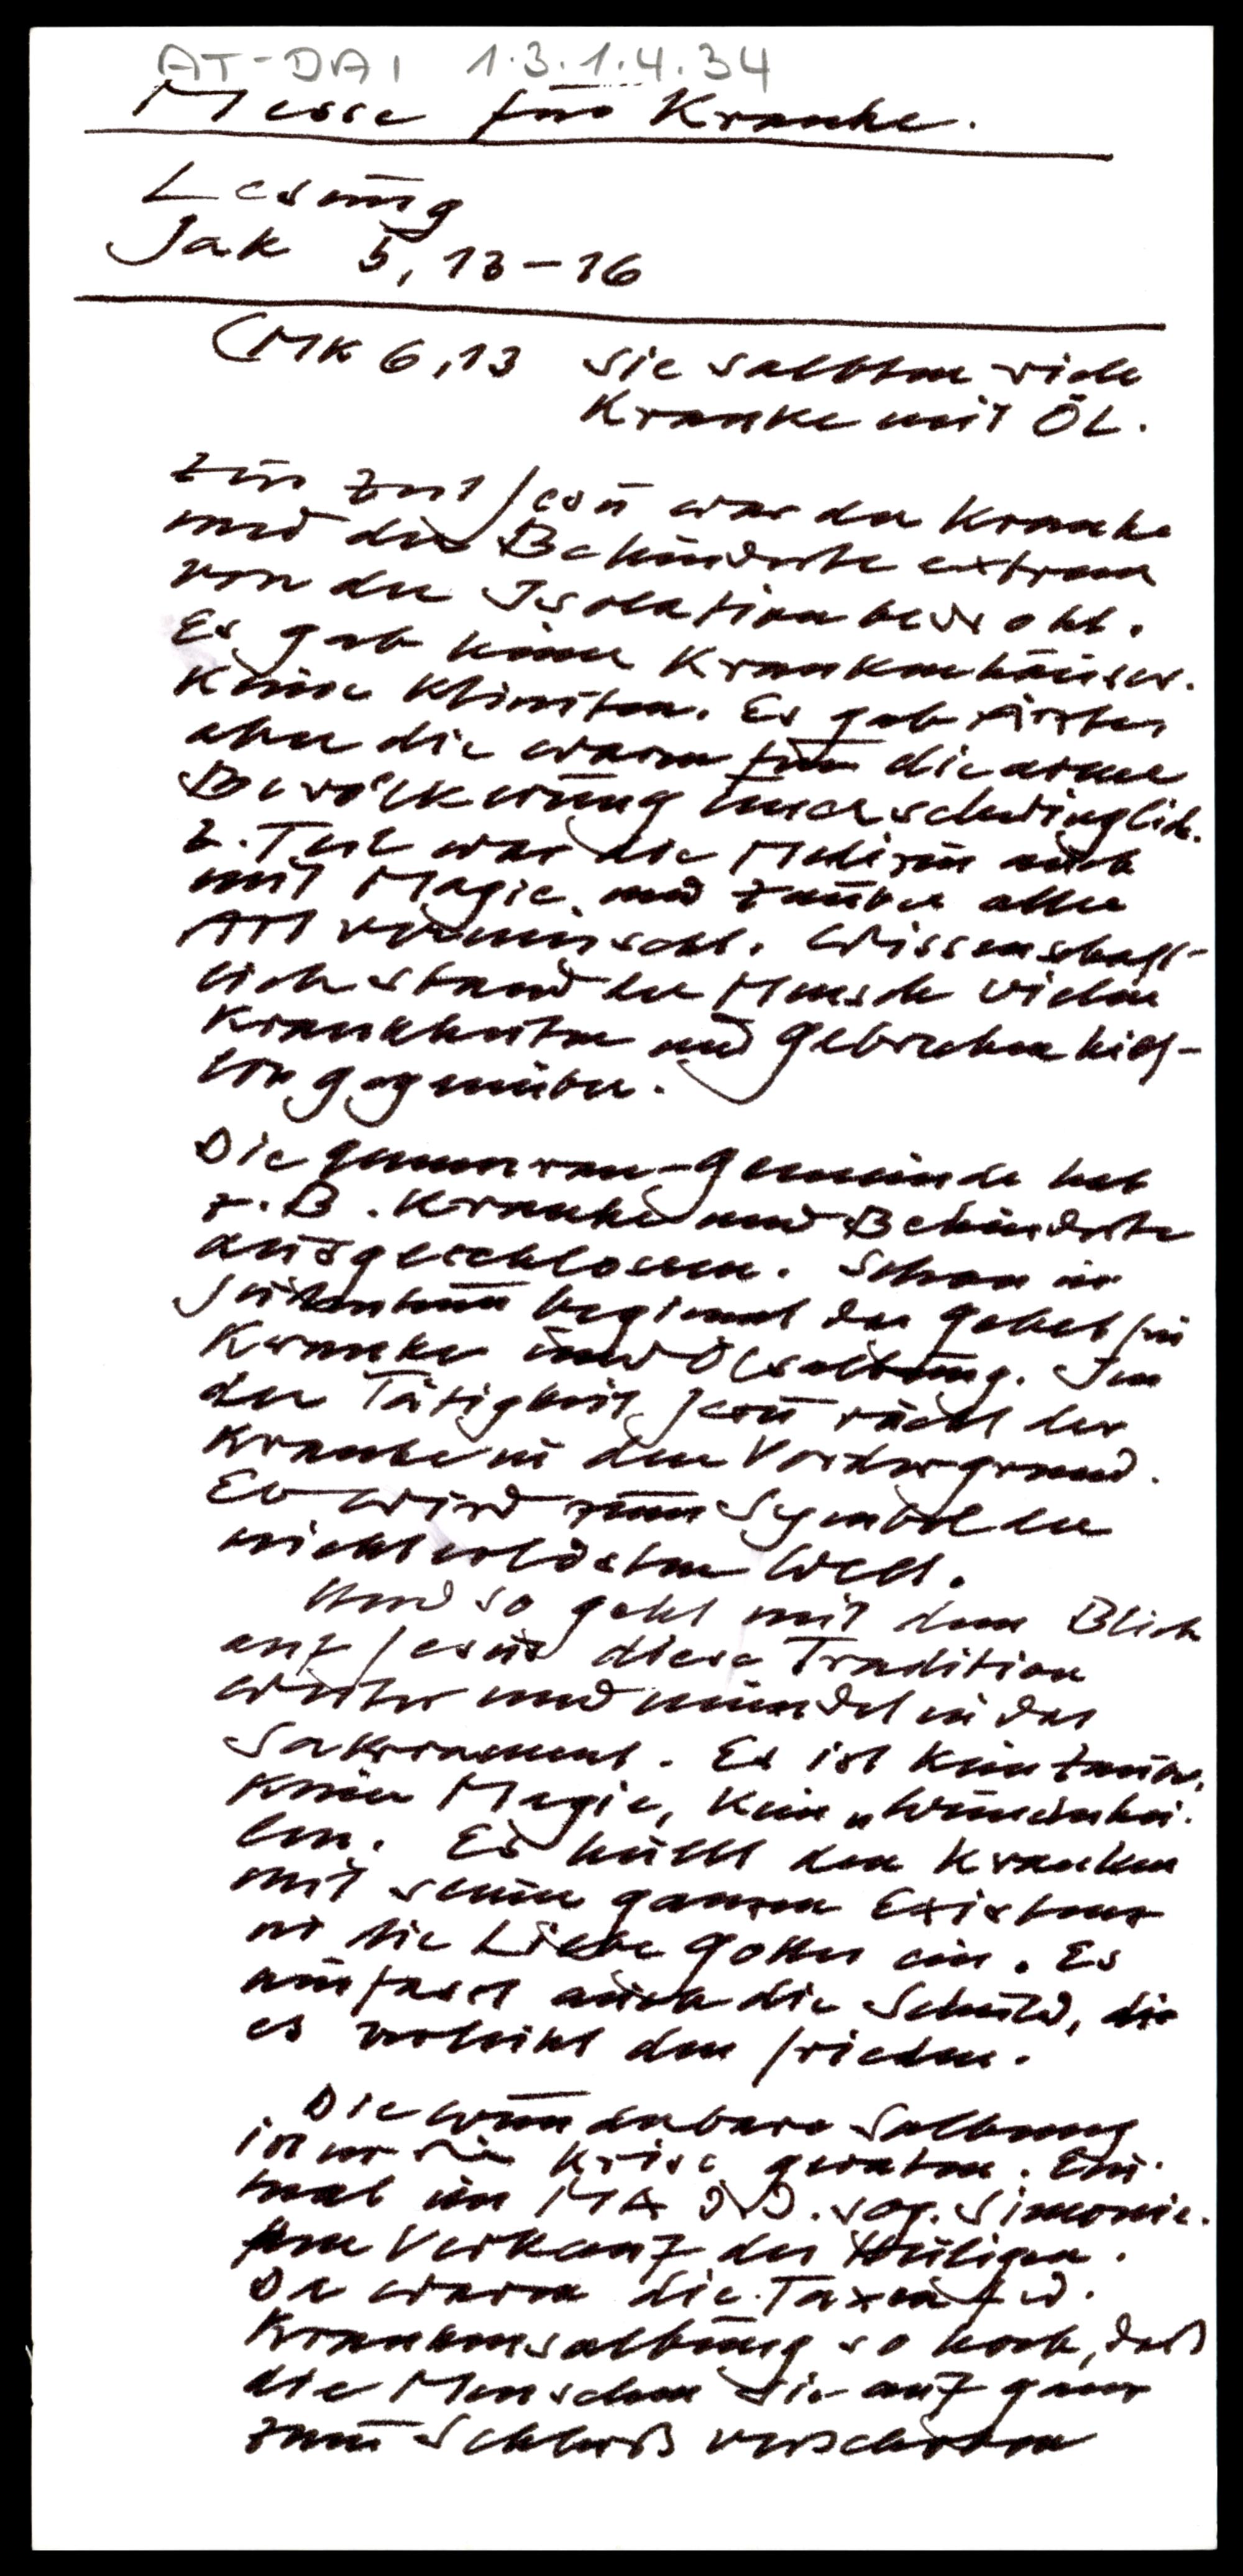 AT-DAI 1.3.1.4.34
Messe für Kranke.
Lesung
Jak 5, 13-16
(Mk 6,13 Sie salbten viele
Kranke mit Öl.
Zur Zeit Jesu war der Kranke
und der Behinderte extrem
von der Isolation bedroht.
Es gab keine Krankenhäuser.
Keine Kliniken. Es gab Ärzte,
aber die waren für die arme
Bevölkerung unerschwinglich.
Z. Teil war die Medizin auch
mit Magie und Zauber aller
Art vermischt. Wissenschaft-
lich stand der Mensch vielen
Krankheiten und Gebrechen hilf-
los gegenüber.
Die Qumran-Gemeinde hat
z. B. Kranke und Behinderte
ausgeschlossen. Schon im
Judentum beginnt das Gebet für
Kranke und Ölsalbung. In
der Tätigkeit Jesu rückt der
Kranke in den Vordergrund.
Er wird zum Symbol der
nichterlösten Welt.
Und so geht mit dem Blick
auf Jesus diese Tradition
weiter und mündet in das
Sakrament. Es ist kein Zauber,
keine Magie, kein „Wunderhei-
len. Es hüllt den Kranken
mit seiner ganzen Existenz
in die Liebe Gottes ein. Es
umfasst auch die Schuld, die
es verleiht den Frieden.
Die wunderbare Salbung
ist in die Krise geraten. Ein-
mal im MA d. d. sog. Simonie.
Dem Verkauf des Heiligen.
Da waren die Taxen f d.
Krankensalbung so hoch, daß
die Menschen sie auf ganz
zum Schluß verschoben